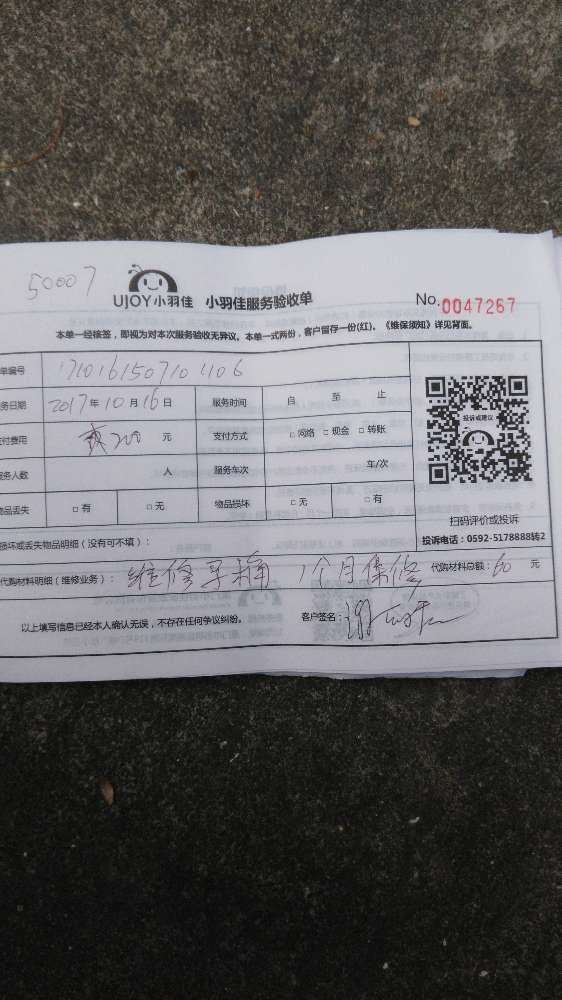 50007
UJOY小羽佳 小羽佳服务验收单 No.0047267
本单一经核签，即视为对本次服务验收无异议。本单一式两份，客户留存一份(红)。《维保须知》详见背面。
单编号 1710161507101106
务日期 2017年10月16日 服务时间 自 至 止
付费用 200 元 支付方式 □网络 □现金 □转账
服务人数 人 服务车次 车/次
物品丢失 □有 □无 物品损坏 □无 □有
投诉或建议
扫码评价或投诉
投诉电话：0592-5178888转2
损坏或丢失物品明细（没有可不填）：
代购材料明细（维修业务）：维修马桶 1个月保修 代购材料总额：60 元
以上填写信息已经本人确认无误，不存在任何争议纠纷。 客户签名：